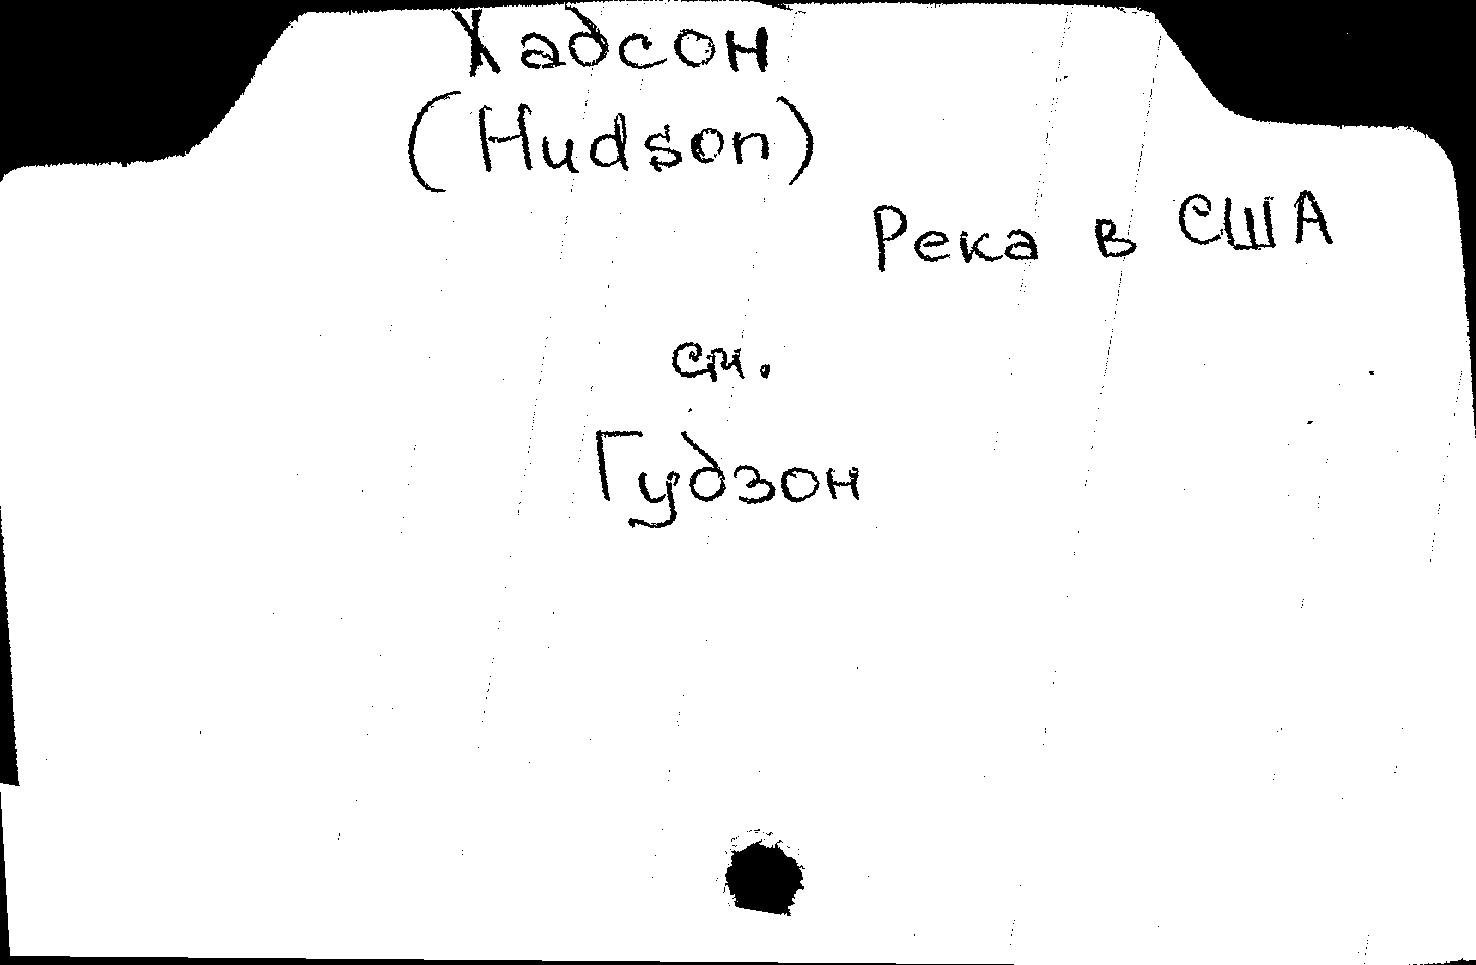 Хадсон
(Hudson)
Река в США
см.
Гудзон